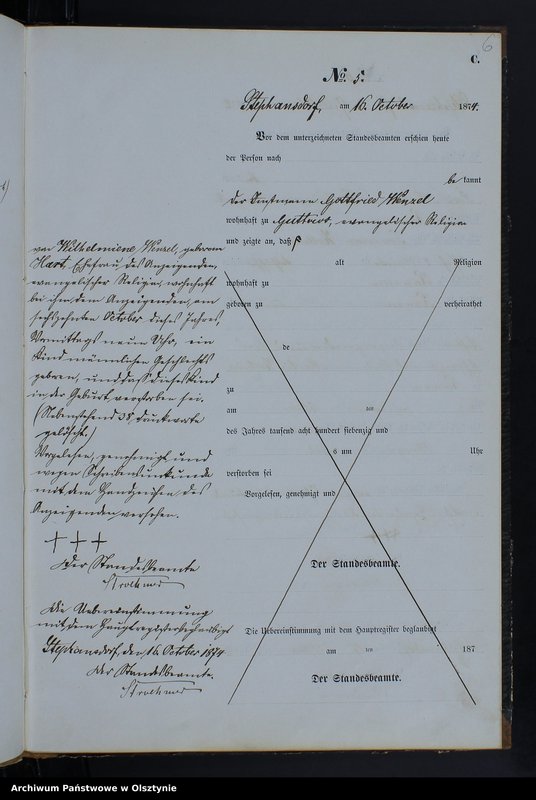 6
C.
No. 5.
Stephansdorf, am 16. October 1874.
Vor dem unterzeichneten Standesbeamten erschien heute
der Person nach
be kannt
der Amtmann Gottfried Wenzel
wohnhaft zu evangelischer Religion
und zeigte an, daß
alt Religion
wohnhaft zu
geboren zu verheirathet
de
zu
am ten
des Jahres tausend acht hundert siebenzig und
s um Uhr
verstorben sei
Vorgelesen, genehmigt und
Der Standesbeamte.
Die Uebereinstimmung mit dem Hauptregister beglaubigt
am ten 187
Der Standesbeamte.
von Wilhelmiene Wenzel, geborene
Hart, Ehefrau des Anzeigenden,
evangelischer Religion, wohnhaft
bei ihm dem Anzeigenden, am
sechszehnten October dieses Jahres,
Vormittags neun Uhr, ein
Kind männlichen Geschlechts
geboren, und daß dieses Kind
in der Geburt verstorben sei.
(Nebenstehend 38 Druckworte
gelöscht.)
Vorgelesen, genehmigt und
wegen Schreibensunkunde
mit dem Handzeichen des
Anzeigenden versehen.
+++
Der Standesbeamte
Die Uebereinstimmung
mit dem Hauptregister beglaubigt
Stephansdorf, den 16. October 1874
Der Standesbeamte.
Archiwum Państwowe w Olsztynie